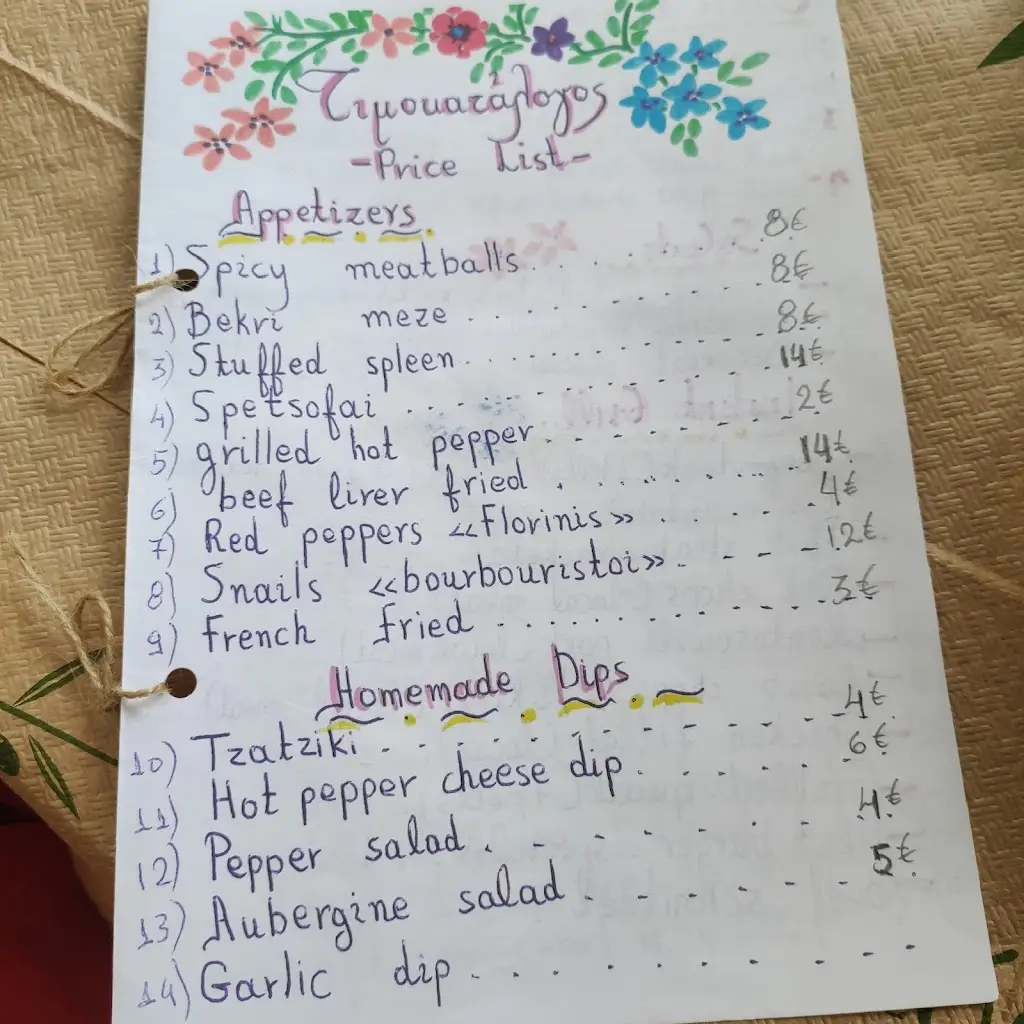 Τιμοκατάλογος
-Price List-
Appetizers
1) Spicy meatballs......8€
2) Bekri meze..........8€
3) Stuffed spleen..........8€
4) Spetsofai..........14€
5) grilled hot pepper........2€
6) beef lirer fried........14€
7) Red peppers «Florinis»......4€
8) Snails «bourbouristoi».----12€
9) french fried..........3€
Homemade Dips
10) Tzatziki..........4€
11) Hot pepper cheese dip......6€
12) Pepper salad.------4€
13) Aubergine salad.------5€
14) Garlic dip.........